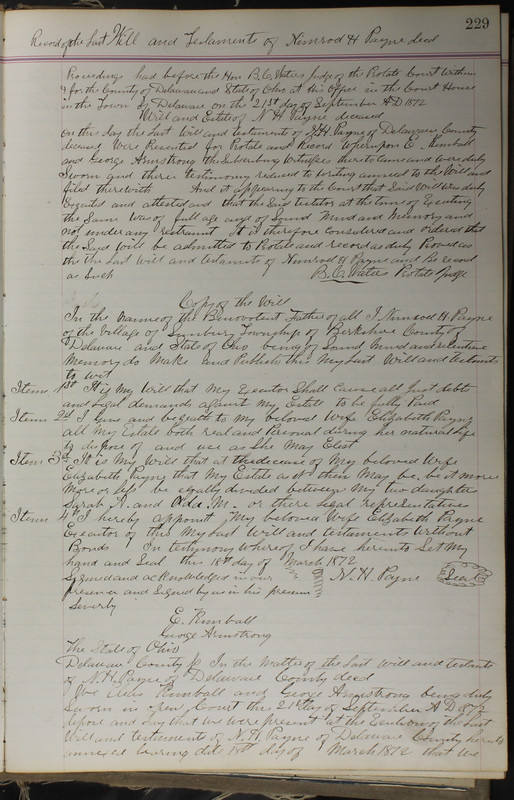 229
Record of the Last Will and Testaments of Nimrod H Payne decd
Proceedings had before the Hon B.C. Waters Judge of the Probate Court within
& for the County of Delaware and State of Ohio at his Office in the Court House
in the Town of Delaware on the 21st day of September A D 1872
Will and Estate of N H Payne deceased
On this day the Last Will and testaments of N.H. Payne of Delaware County
deceased Were Presented for Probate and Record Whereupon E. Kimball
and George Armstrong the Subscribing Witnesses there to came and were duly
Sworn and their testimony reduced to Writing annexed to the Will and
filed therewith And it appearing to the Court that Said Will was duly
Executed and attested and that the Said testator at the time of Executing
the Same Was of full age and of Sound Mind and Memory and
not under any restraint It is therefore considered and ordered that
the Said Will be admitted to Probate and record as duly Proved as
the the Last Will and testaments of Nimrod H Payne and Be record
as Such B.C. Waters Probate Judge
Copy of the Will
In the Name of the Benevolent Father of all I Nimrod H Payne
of the Village of Sunbury Township of Berkshire County of
Delaware and State of Ohio being of Sound Mind and retentive
Memory do Make and Publish this My Last Will and testaments
to wit
Item 1st It is My Will that My Executor Shall Cause all Just debts
and Legal demands against My Estate to be fully Paid
Item 2d I give and bequeath to My beloved Wife Elizabeth Payne
all My Estate both real and Personal during her natural life
to dispose of and use as She May Elect
Item 3d It is My Will that at the decease of My beloved Wife
Elizabeth Payne that My Estate as it then May be, be it more
More or less be equally divided between My two daughter
Sarah A. and Alda. M. or there Legal representatives
Item 4th I hereby appoint My beloved Wife Elizabeth Payne
Executor of this My Last Will and testaments Without
Bonds In testimony Whereof I have hereunto Set My
hand and Seal this 18th day of March 1872
Signed and acknowledged in our N. H. Payne Seal
presence and Signed by us in his presence
E. Kimball
George Armstrong
The State of Ohio
Delaware County ss In the Matter of the Last Will and testaments
of N.H. Payne of Delaware County decd
We Kimball and George Armstrong being duly
Sworn in Open Court this 21st day of September A D 1872
depose and Say that we were present at the Execution of the Last
Will and testaments of N.H. Payne of Delaware County hereto
annexed bearing date 18th day of March 1872 that we